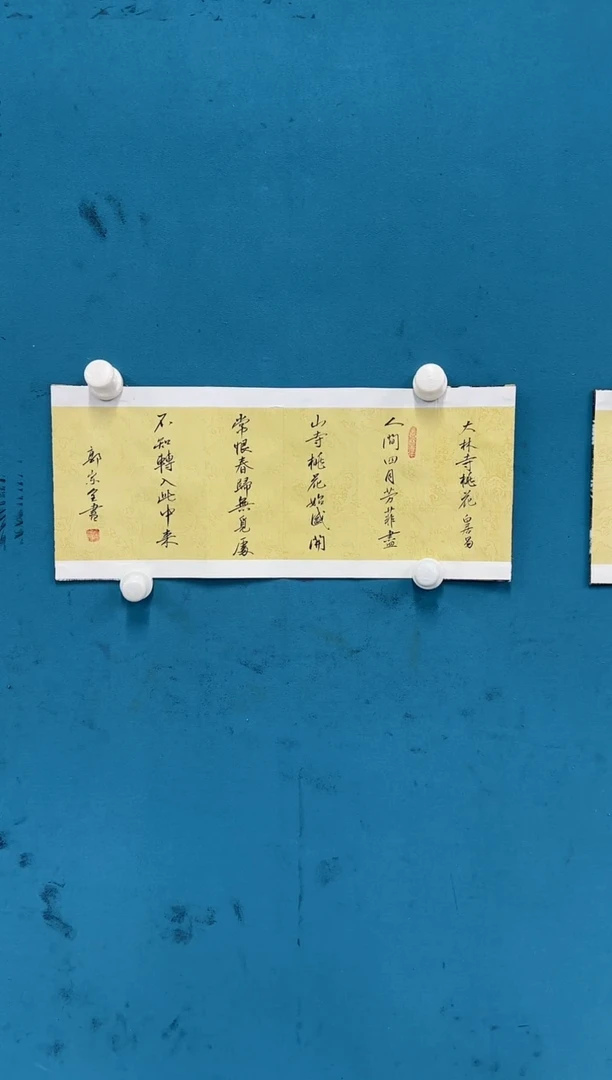 大林寺桃花 白居易
人間四月芳菲盡
山寺桃花始盛開
常恨春歸無覓處
不知轉入此中来
郭宗全書